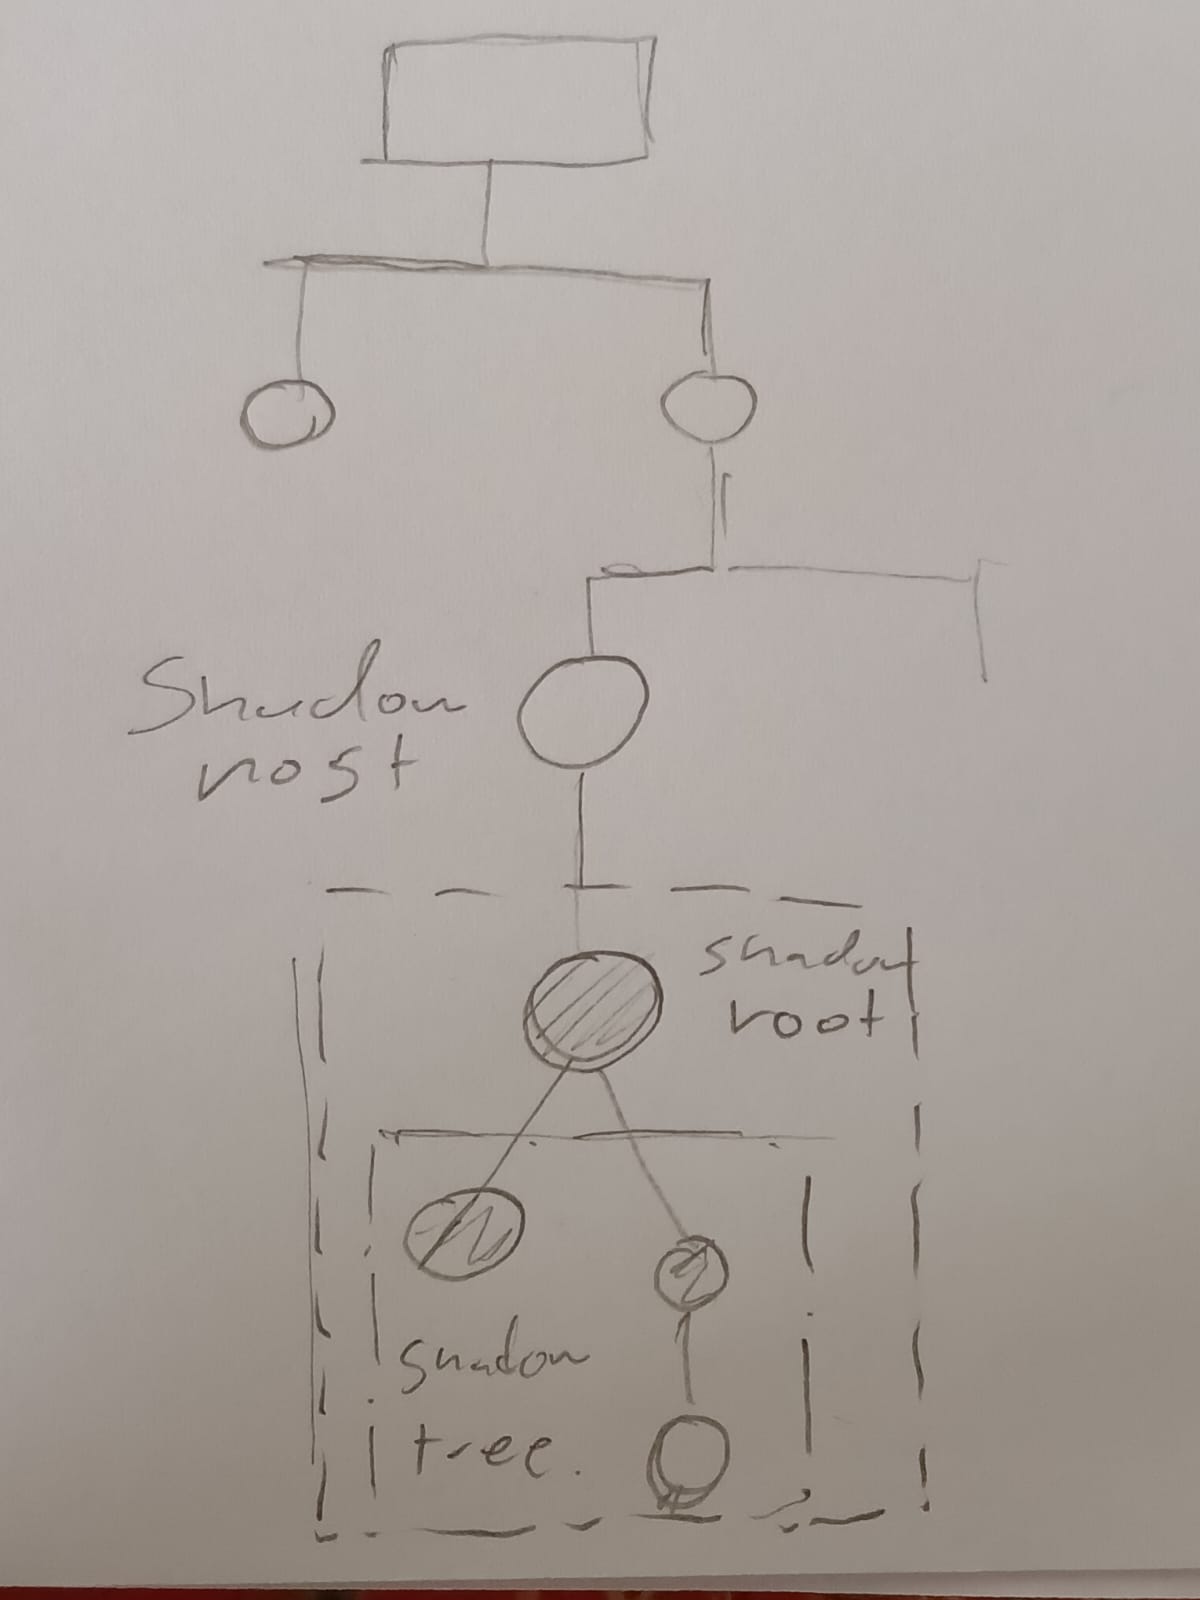 Shadow
host
shadow
root
shadow
tree.